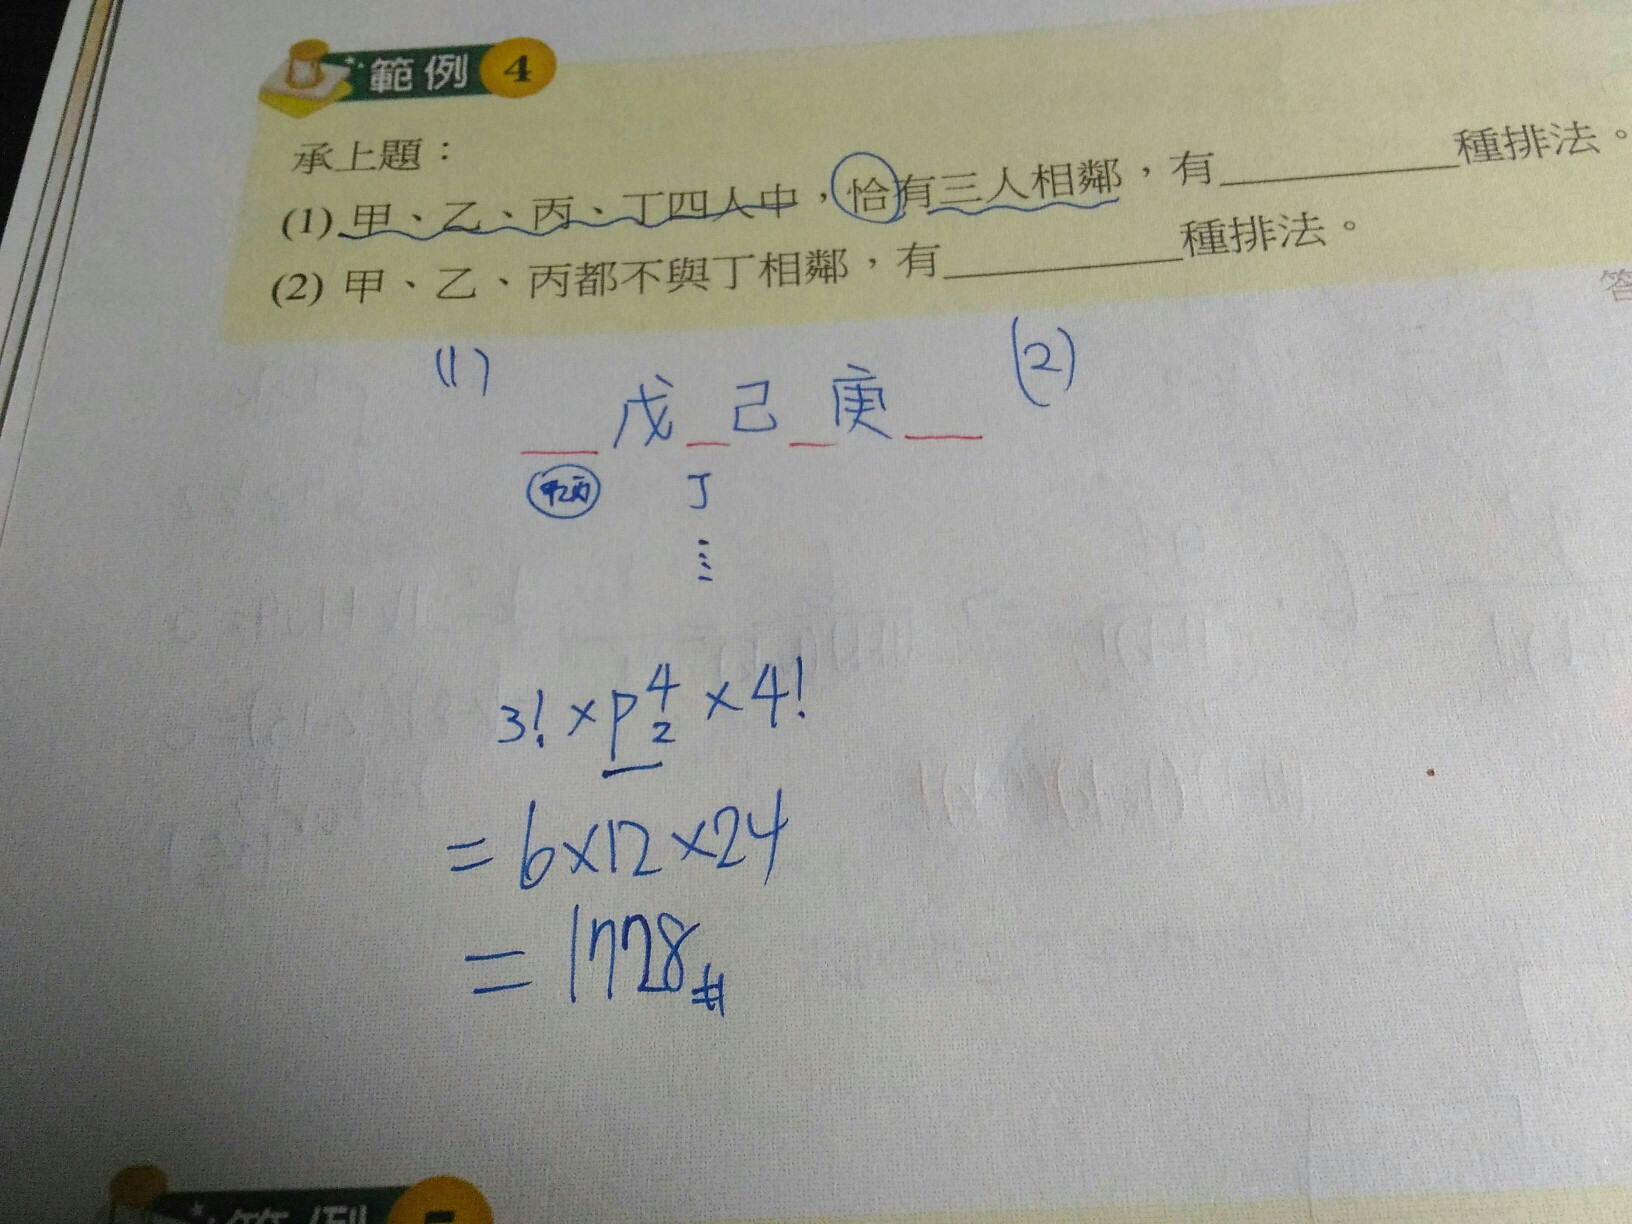 範例 4
承上題：
(1) 甲、乙、丙、丁四人中，恰有三人相鄰，有____________種排法。
(2) 甲、乙、丙都不與丁相鄰，有____________種排法。
答
(1) (2)
__ 戊 __ 己 __ 庚 __
甲乙丙 丁
3! × P⁴₂ × 4!
= 6×12×24
= 1728#
範例 5